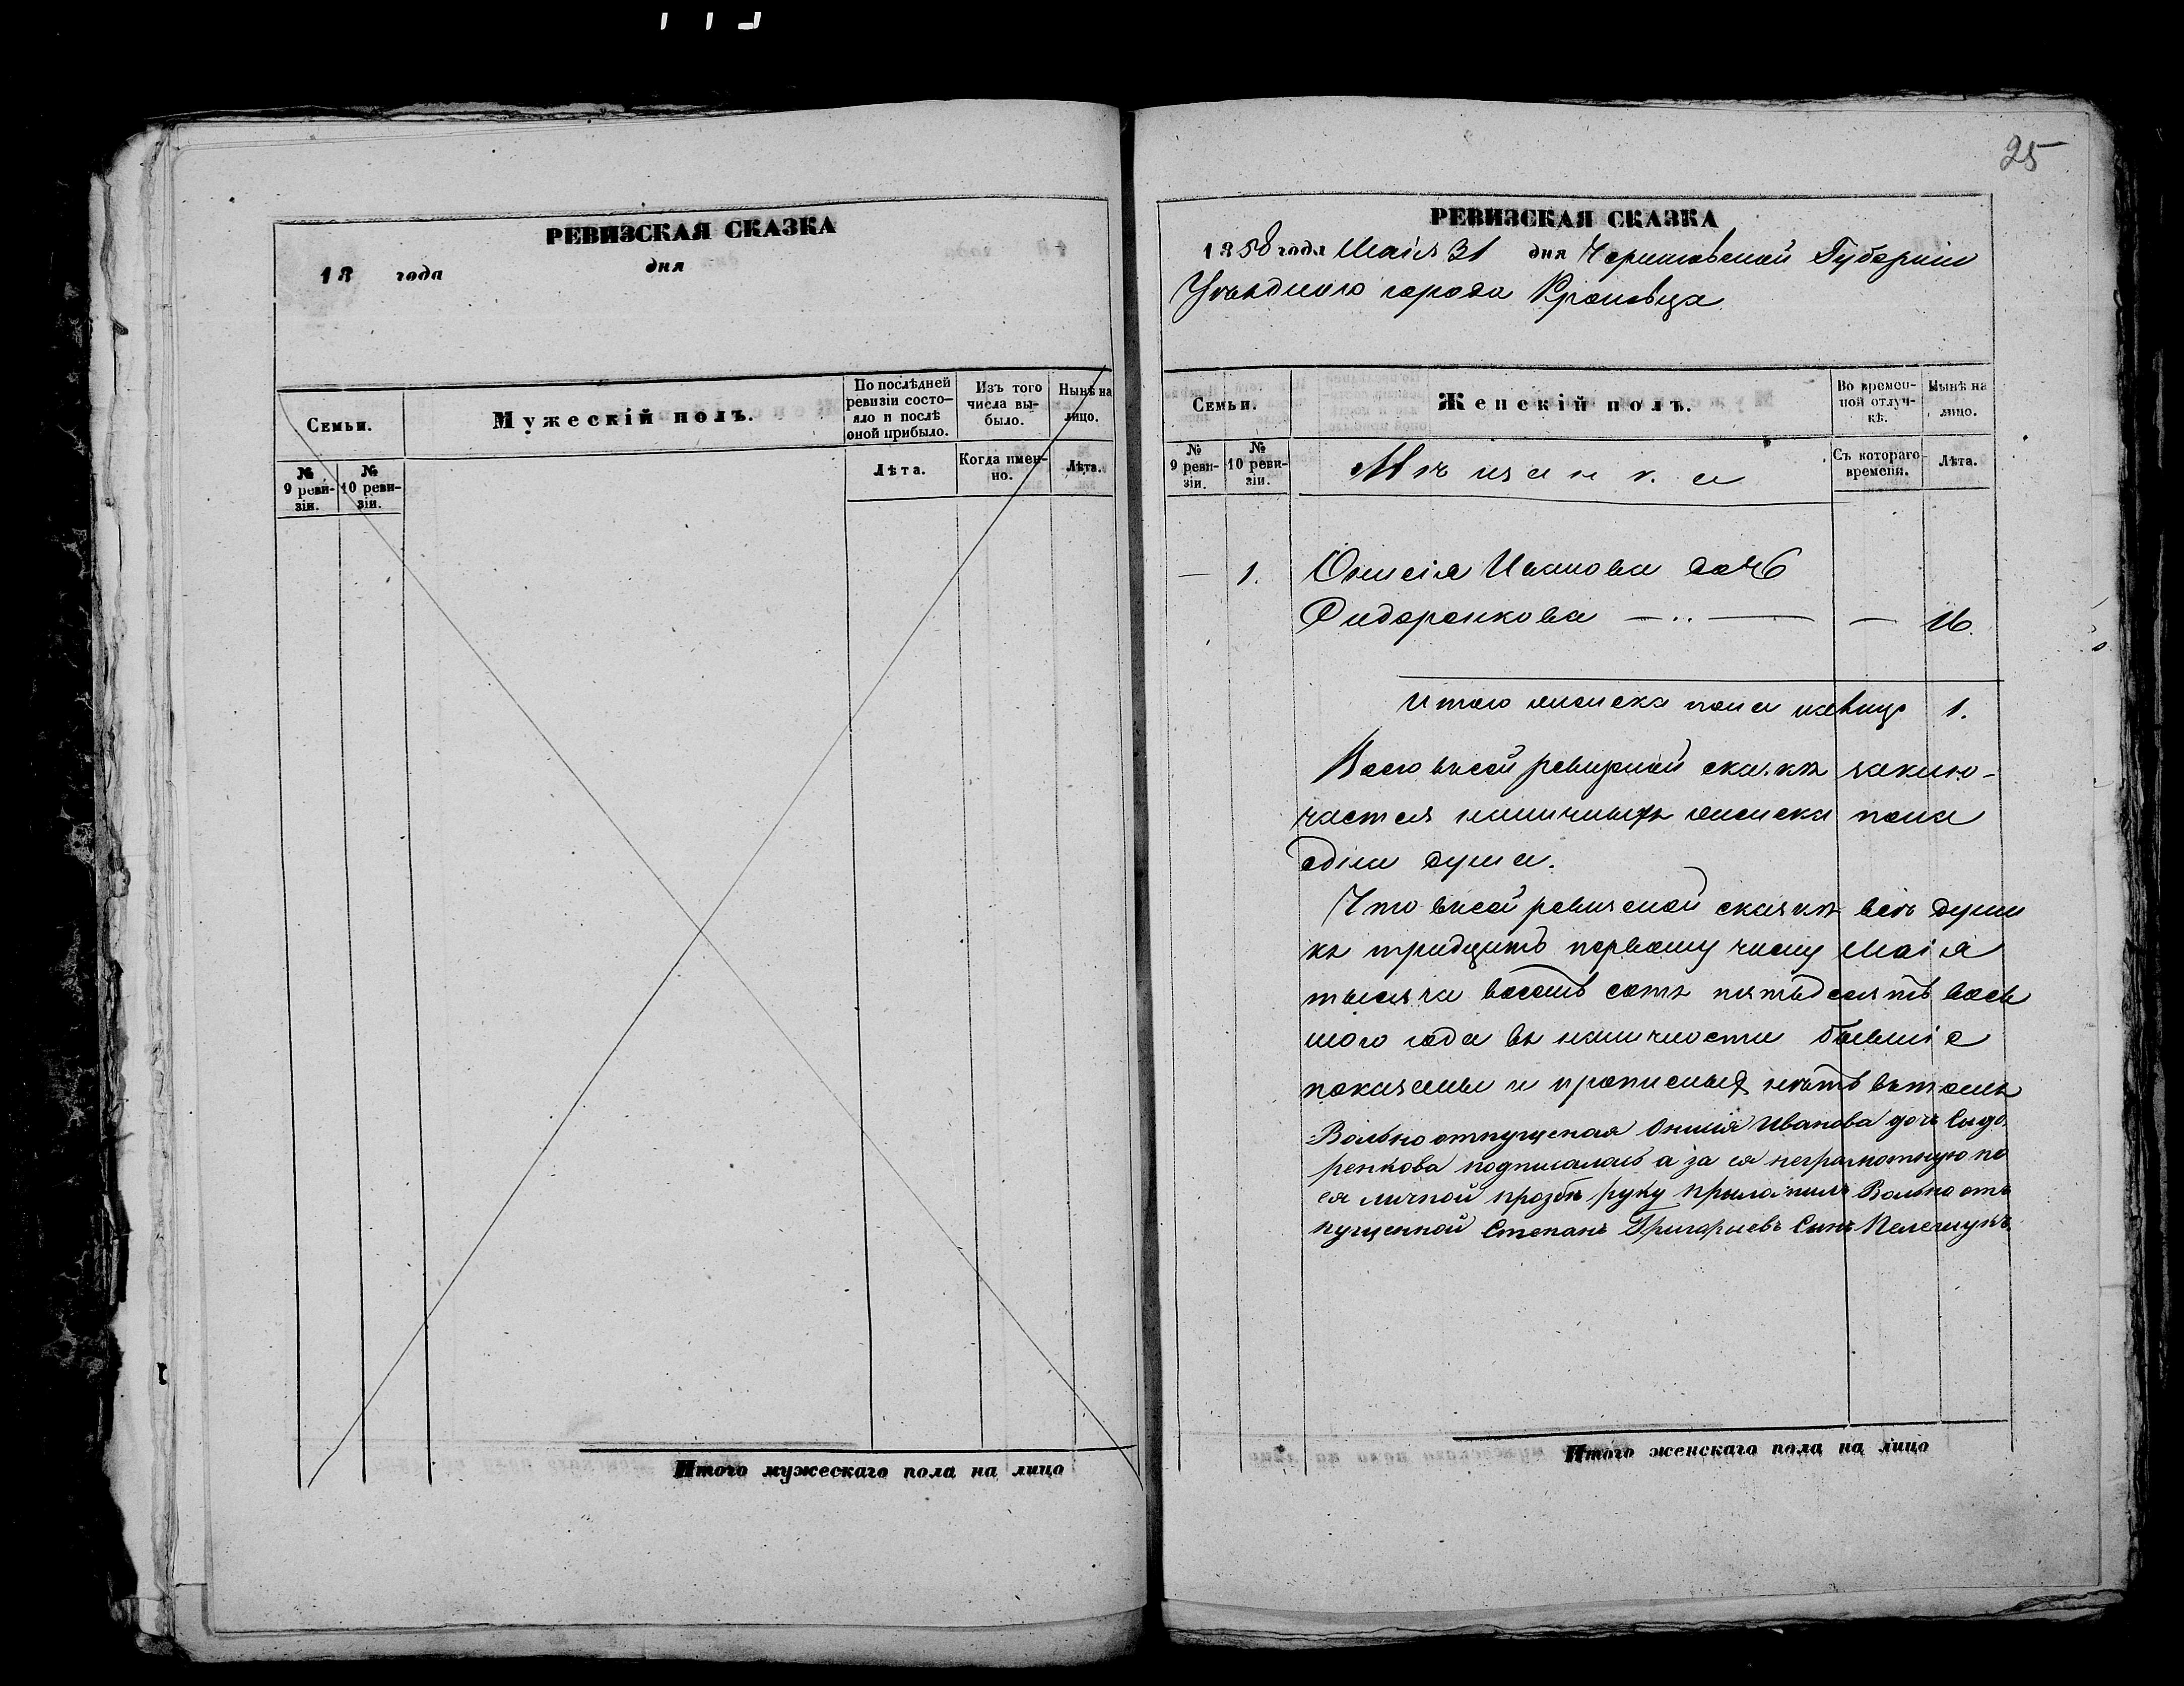 РЕВИЗСКАЯ СКАЗКА
18 года дня
Семьи.
Мужескій полъ.
По послѣдней ревизіи состо-яло и послѣ оной прибыло.
Изъ того числа вы-было.
Нынѣ на лицо.
№ 9 реви-зіи.
№ 10 реви-зіи.
Лѣта.
Когда имен-но.
Лѣта.
Итого мужескаго пола на лицо
25
РЕВИЗСКАЯ СКАЗКА
1858 года Маія 31 дня Черниговской Губерніи
Уѣзднаго города Кролевца
Семьи.
Женскій полъ.
Во времен-ной отлуч-кѣ.
Нынѣ на лицо.
№ 9 реви-зіи.
№ 10 реви-зіи.
Мѣщанка
Съ котораго времени.
Лѣта.
— 1. Онисія Иванова дочь
Сидоренкова — .. — — 16.
Итого женска пола налицо 1.
Всего въсей ревизской сказкѣ заклю-
чается наличныхъ женска пола
одна душа.
Что въсей ревизской сказкѣ всѣ души
къ тридцать первому числу Маія
тысяча восемь сотъ пятьдесятъ вось
мого года въ наличности бывшіе
показаны и прописныхъ нѣтъ вътомъ
Вольноотпущеная Онисія Иванова дочь Сидо
ренкова подписалась а за ея неграмотную по
ея личной прозбѣ руку прыложилъ Вольно отъ
пущенной Степанъ Григориевъ Сынъ Пелешукъ.
Итого женскаго пола на лицо